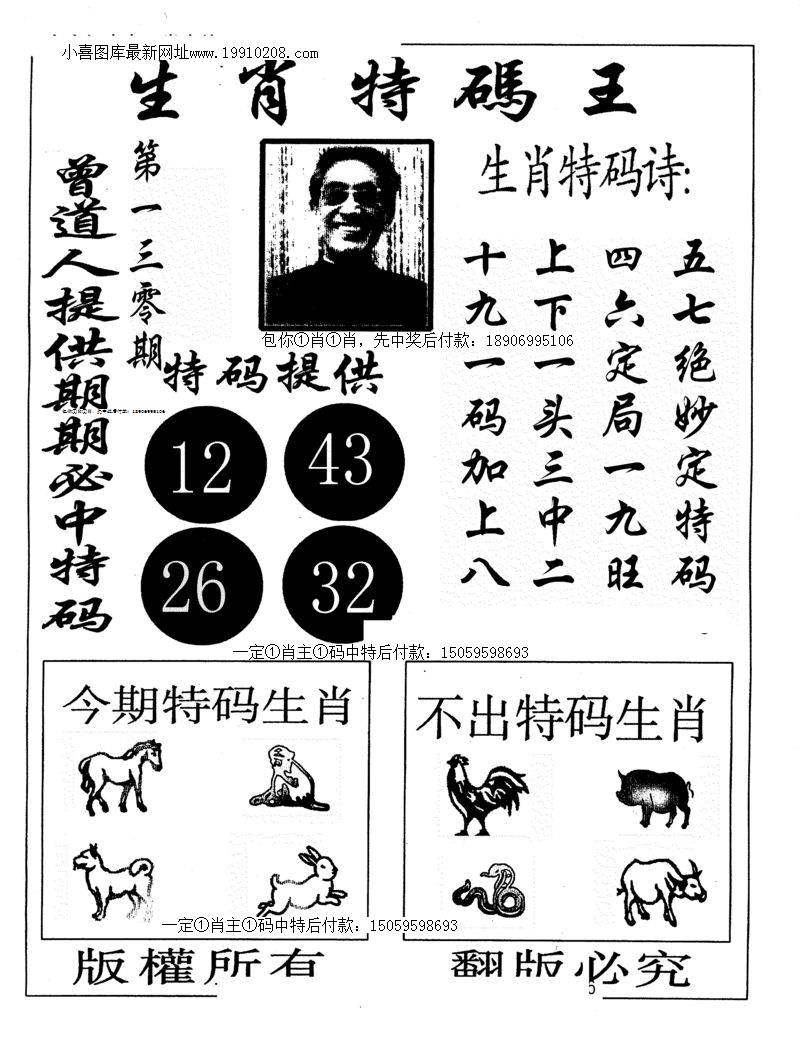 小喜图库最新网址www.19910208.com
生肖特碼王
曾道人提供期期必中特码
第一三零期
生肖特码诗:
五七绝妙定特码
四六定局一九旺
上下一头三中二
十九一码加上八
包你①肖①肖，先中奖后付款：18906995106
特码提供
包你①肖①肖，先中奖后付款：18906995106
12
43
26
32
一定①肖主①码中特后付款：15059598693
今期特码生肖
不出特码生肖
一定①肖主①码中特后付款：15059598693
版權所有
翻版必究